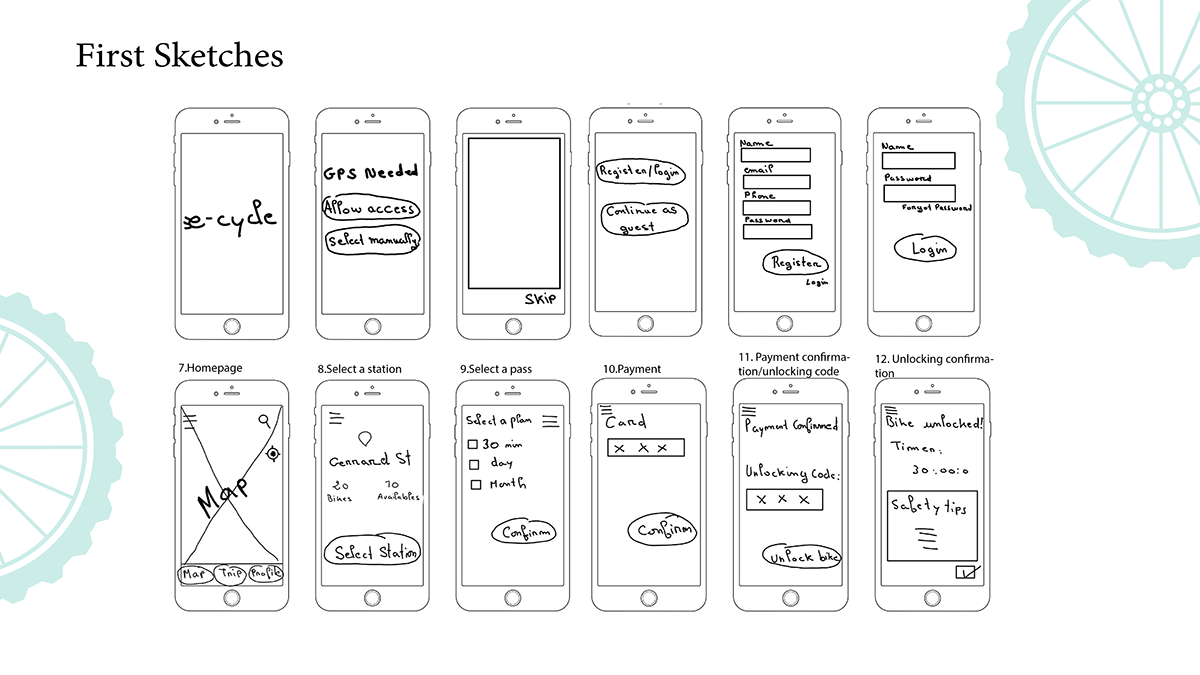 First Sketches
e-cycle
GPS Needed
Allow access
Select manually
SKIP
Register/login
Continue as
guest
Name
email
Phone
Password
Register
Login
Name
Password
Forgot Password
Login
7.Homepage
Map
Map
Trip
Profile
8.Select a station
Gerrard St
20
10
Bikes
Availables
Select Station
9.Select a pass
Select a plan
30 min
day
Month
Confirm
10.Payment
Card
x x x
Confirm
11. Payment confirma-
tion/unlocking code
Payment Confirmed
Unlocking Code:
x x x
Unlock bike
12. Unlocking confirma-
tion
Bike unlocked!
Timer:
30:00:0
Safety tips